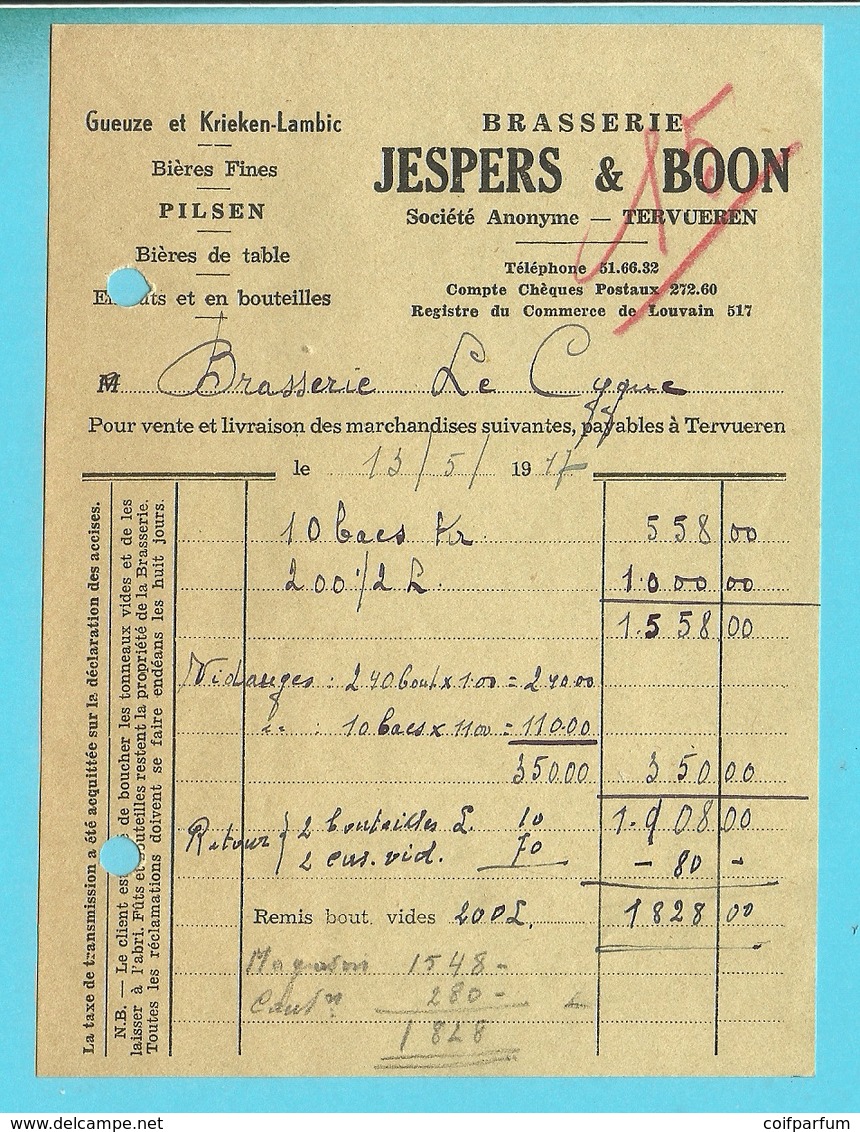 Gueuze et Krieken-Lambic
Bières Fines
PILSEN
Bières de table
et en bouteilles
BRASSERIE
JESPERS & BOON
Société Anonyme — TERVUEREN
Téléphone 51.66.32
Compte Chèques Postaux 272.60
Registre du Commerce de Louvain 517
15
M Brasserie Le Cygne
Pour vente et livraison des marchandises suivantes, payables à Tervueren
le 13/5/ 19 47
10 bacs Kr. 558 00
200 1/2 L. 1.000 00
1.558 00
Vidanges : 240 bout x 1.00 = 240.00
" : 10 bacs x 11 00 = 110.00
350.00 350 00
1.908 00
Retour } 2 bouteilles L. 10
2 cas. vid. 70 — 80 -
Remis bout. vides 200 L. 1828 00
Magasin 1548 -
Caut 280 -
1828
La taxe de transmission a été acquittée sur la déclaration des accises.
N.B. — Le client est de boucher les tonneaux vides et de les
laisser à l'abri. Fûts et bouteilles restent la propriété de la Brasserie.
Toutes les réclamations doivent se faire endéans les huit jours.
www.delcampe.net
coifparfum